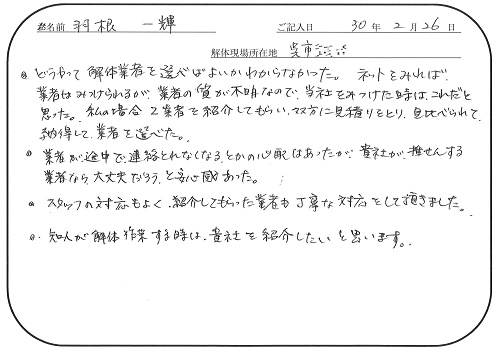 お名前 羽根 一輝 ご記入日 30年 2月 26日
解体現場所在地 呉市
どうやって解体業者を選べばよいかわからなかった。ネットをみれば、
業者はみつけられるが、業者の質が不明なので、当社をみつけた時は、これだと
思った。私の場合2業者を紹介してもらい、双方に見積りをとり、見比べられて、
納得して、業者を選べた。
業者が途中で連絡とれなくなる、とかの心配はあったが、貴社が、推せんする
業者なら、大丈夫だろう、と安心感あった。
スタッフの対応もよく、紹介してもらった業者も丁寧な対応をして頂きました。
知人が解体作業する時は、貴社を紹介したいと思います。